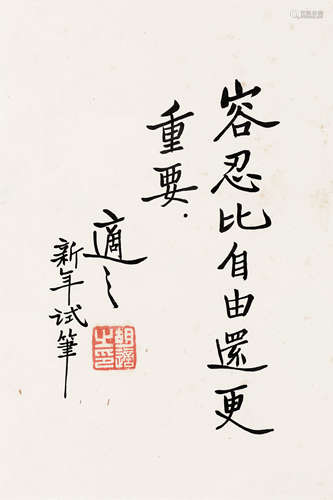 容忍比自由還更
重要.
適之
新年试筆
胡適
之印